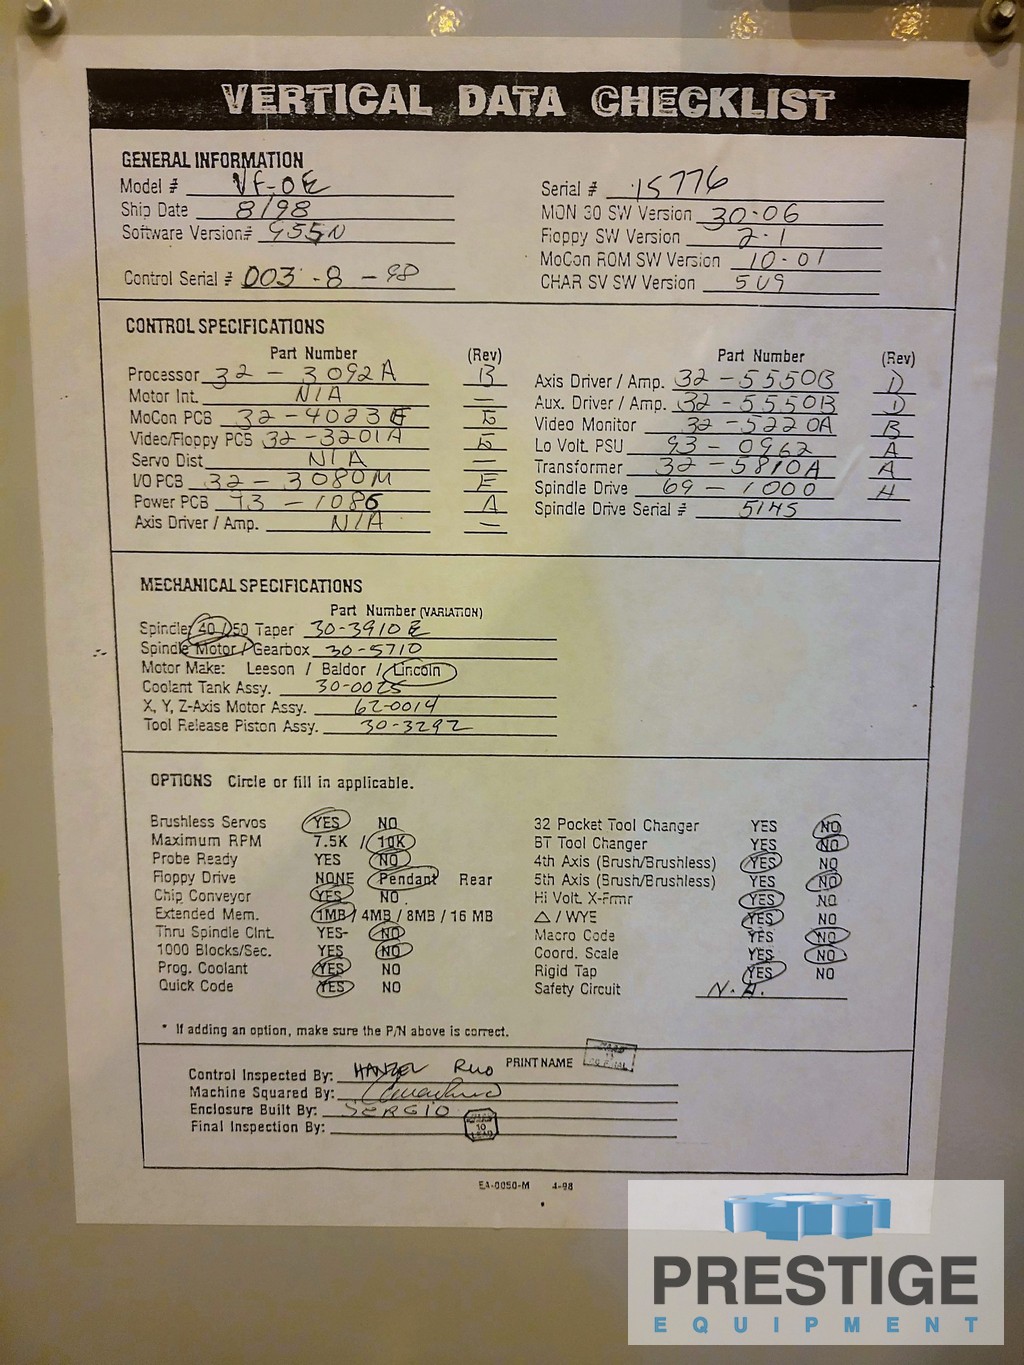 VERTICAL DATA CHECKLIST
GENERAL INFORMATION
Model # VF-OE
Ship Date 8/98
Software Version# 955N
Control Serial # 003-8-98
Serial # 15776
MON 30 SW Version 30-06
Floppy SW Version 2-1
MoCon ROM SW Version 10-01
CHAR SV SW Version 5U9
CONTROL SPECIFICATIONS
Part Number (Rev)
Processor 32-3092A B
Motor Int. N/A —
MoCon PCB 32-4023E E
Video/Floppy PCB 32-3201A E
Servo Dist N/A —
I/O PCB 32-3080M E
Power PCB 93-1086 A
Axis Driver / Amp. N/A —
Part Number (Rev)
Axis Driver / Amp. 32-5550B D
Aux. Driver / Amp. 32-5550B D
Video Monitor 32-5220A B
Lo Volt. PSU 93-0962 A
Transformer 32-5810A A
Spindle Drive 69-1000 H
Spindle Drive Serial # 5145
MECHANICAL SPECIFICATIONS
Part Number (VARIATION)
Spindle 40 / 50 Taper 30-3910E
Spindle Motor / Gearbox 30-5710
Motor Make: Leeson / Baldor / Lincoln
Coolant Tank Assy. 30-0025
X, Y, Z-Axis Motor Assy. 62-0014
Tool Release Piston Assy. 30-3292
OPTIONS Circle or fill in applicable.
Brushless Servos YES NO
Maximum RPM 7.5K / 10K
Probe Ready YES NO
Floppy Drive NONE Pendant Rear
Chip Conveyor YES NO
Extended Mem. 1MB / 4MB / 8MB / 16 MB
Thru Spindle Clnt. YES NO
1000 Blocks/Sec. YES NO
Prog. Coolant YES NO
Quick Code YES NO
32 Pocket Tool Changer YES NO
BT Tool Changer YES NO
4th Axis (Brush/Brushless) YES NO
5th Axis (Brush/Brushless) YES NO
Hi Volt. X-Frmr YES NO
△ / WYE YES NO
Macro Code YES NO
Coord. Scale YES NO
Rigid Tap YES NO
Safety Circuit N.A.
* If adding an option, make sure the P/N above is correct.
PRINT NAME
Control Inspected By: HANZEL
Machine Squared By:
Enclosure Built By: SERGIO
Final Inspection By:
10
EA-0050-M 4-98
PRESTIGE
EQUIPMENT